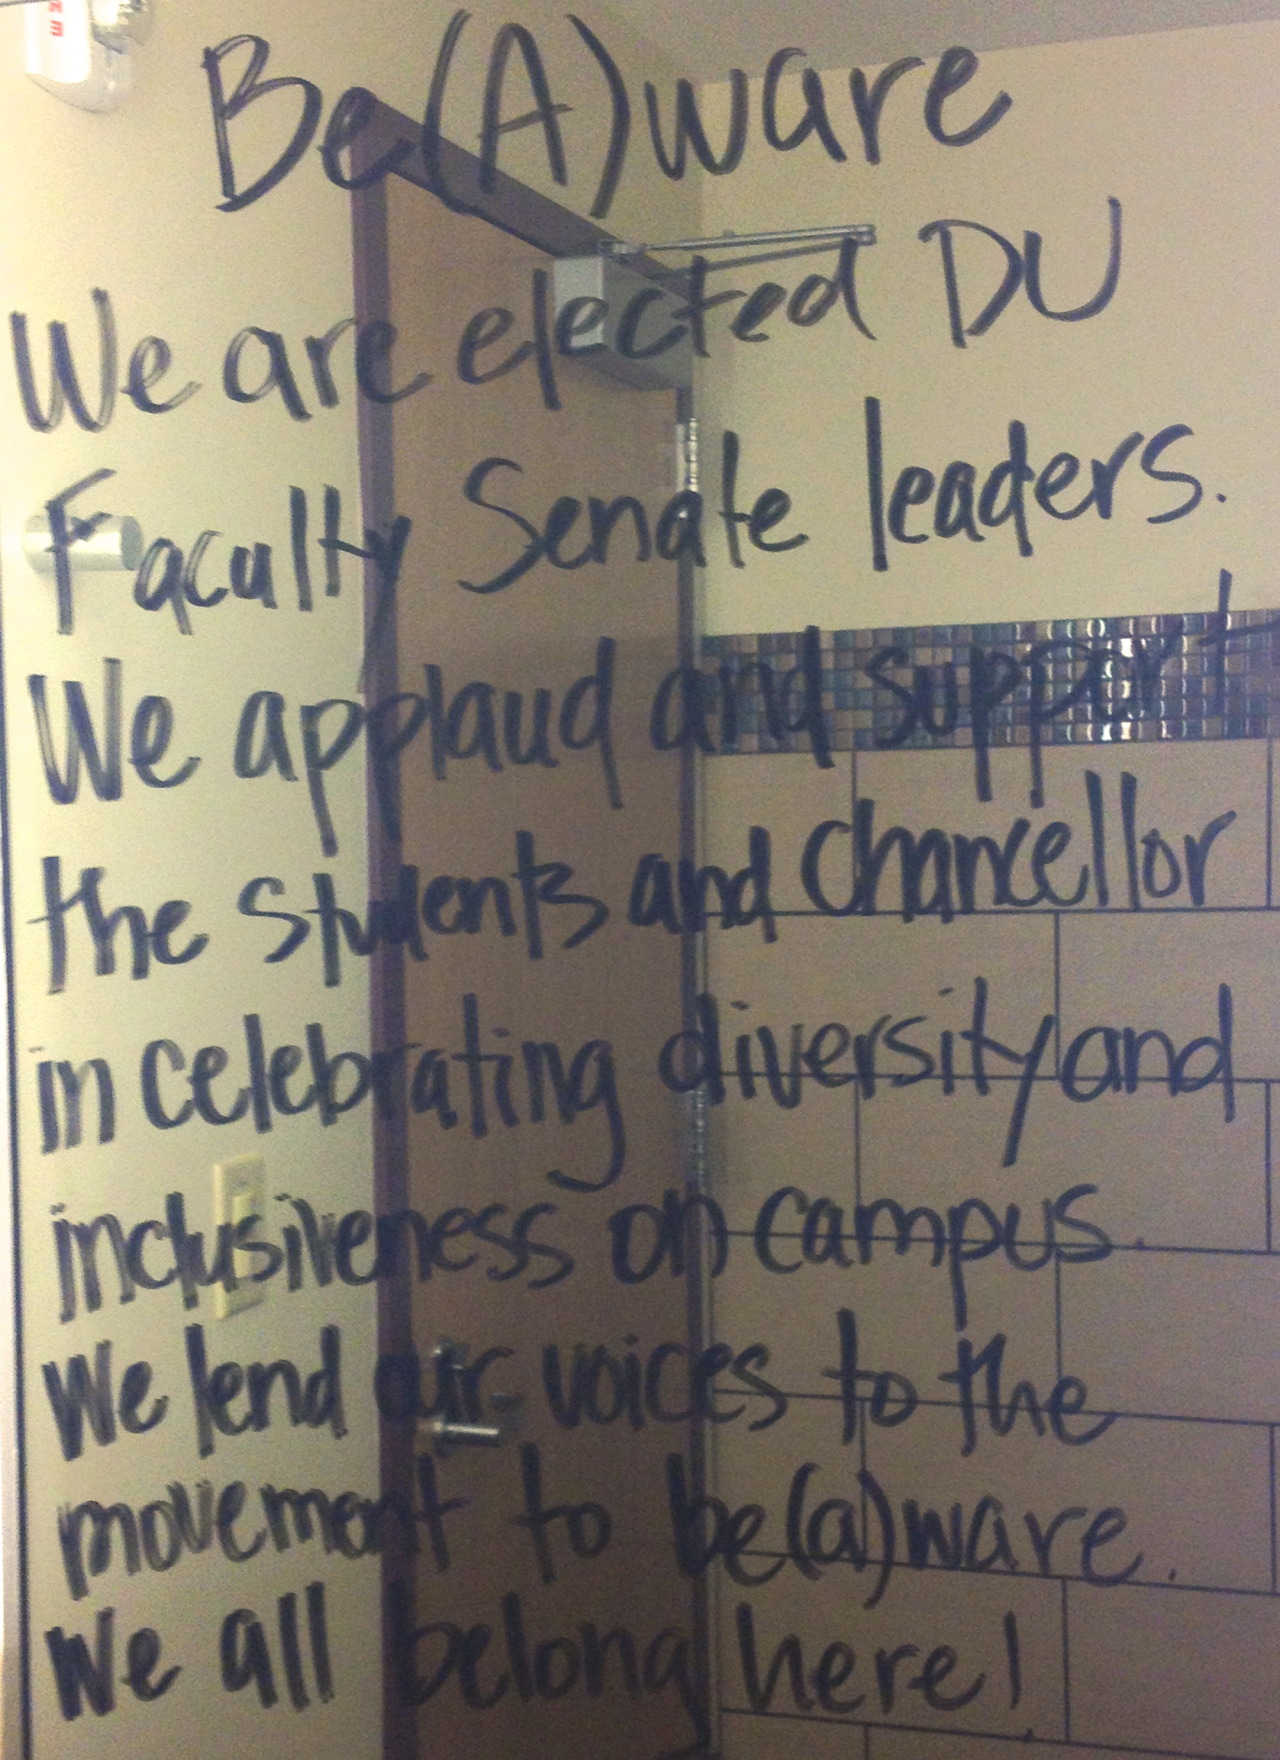 Be(A)ware
We are elected DU
Faculty Senate leaders.
We applaud and support
the students and chancellor
in celebrating diversity and
inclusiveness on campus.
We lend our voices to the
movement to be(a)ware.
We all belong here!